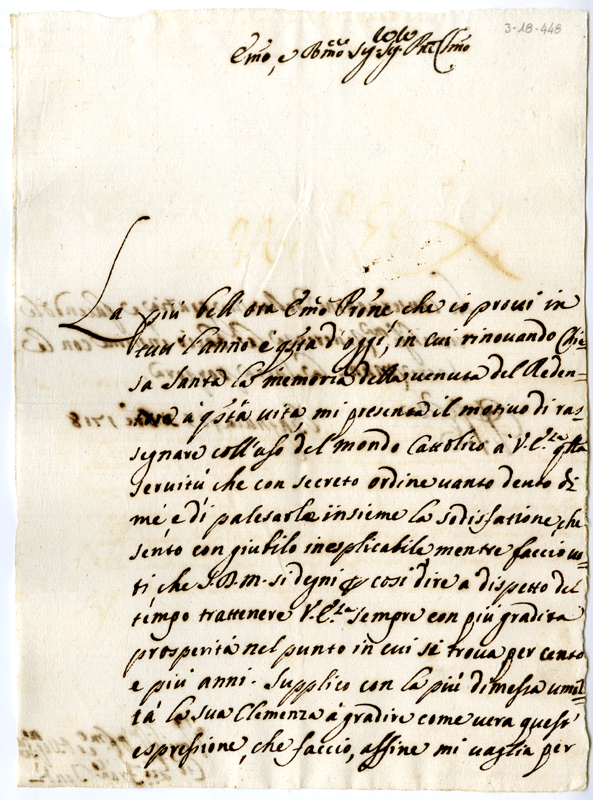 3-18-448
Emo, e Rmo Sig Sig Prne Clmo
La più bell'ora Emo Prone che io provi in
tutt l'anno è qsta d'oggi, in cui rinovando Chie=
sa Santa la memoria della venuta del Reden=
tore à qsta vita, mi presenta il motivo di ras=
segnare coll'uso del mondo Cattolico à V. E.za qlla
servitù che con secreto ordine vanto dento di
mé, e di palesarle insieme la sodisfatione, che
sento con giubilo inesplicabile mentre faccio uo=
ti che S. D. M. si degni p così dire a dispetto del
tempo trattenere V. E.za sempre con più gradita
prosperità nel punto in cui si trova per cento
e più anni. Supplico con la più dimessa umil=
tà la sua Clemenza à gradire come vera quest'
espressione, che faccio, affine mi vaglia per